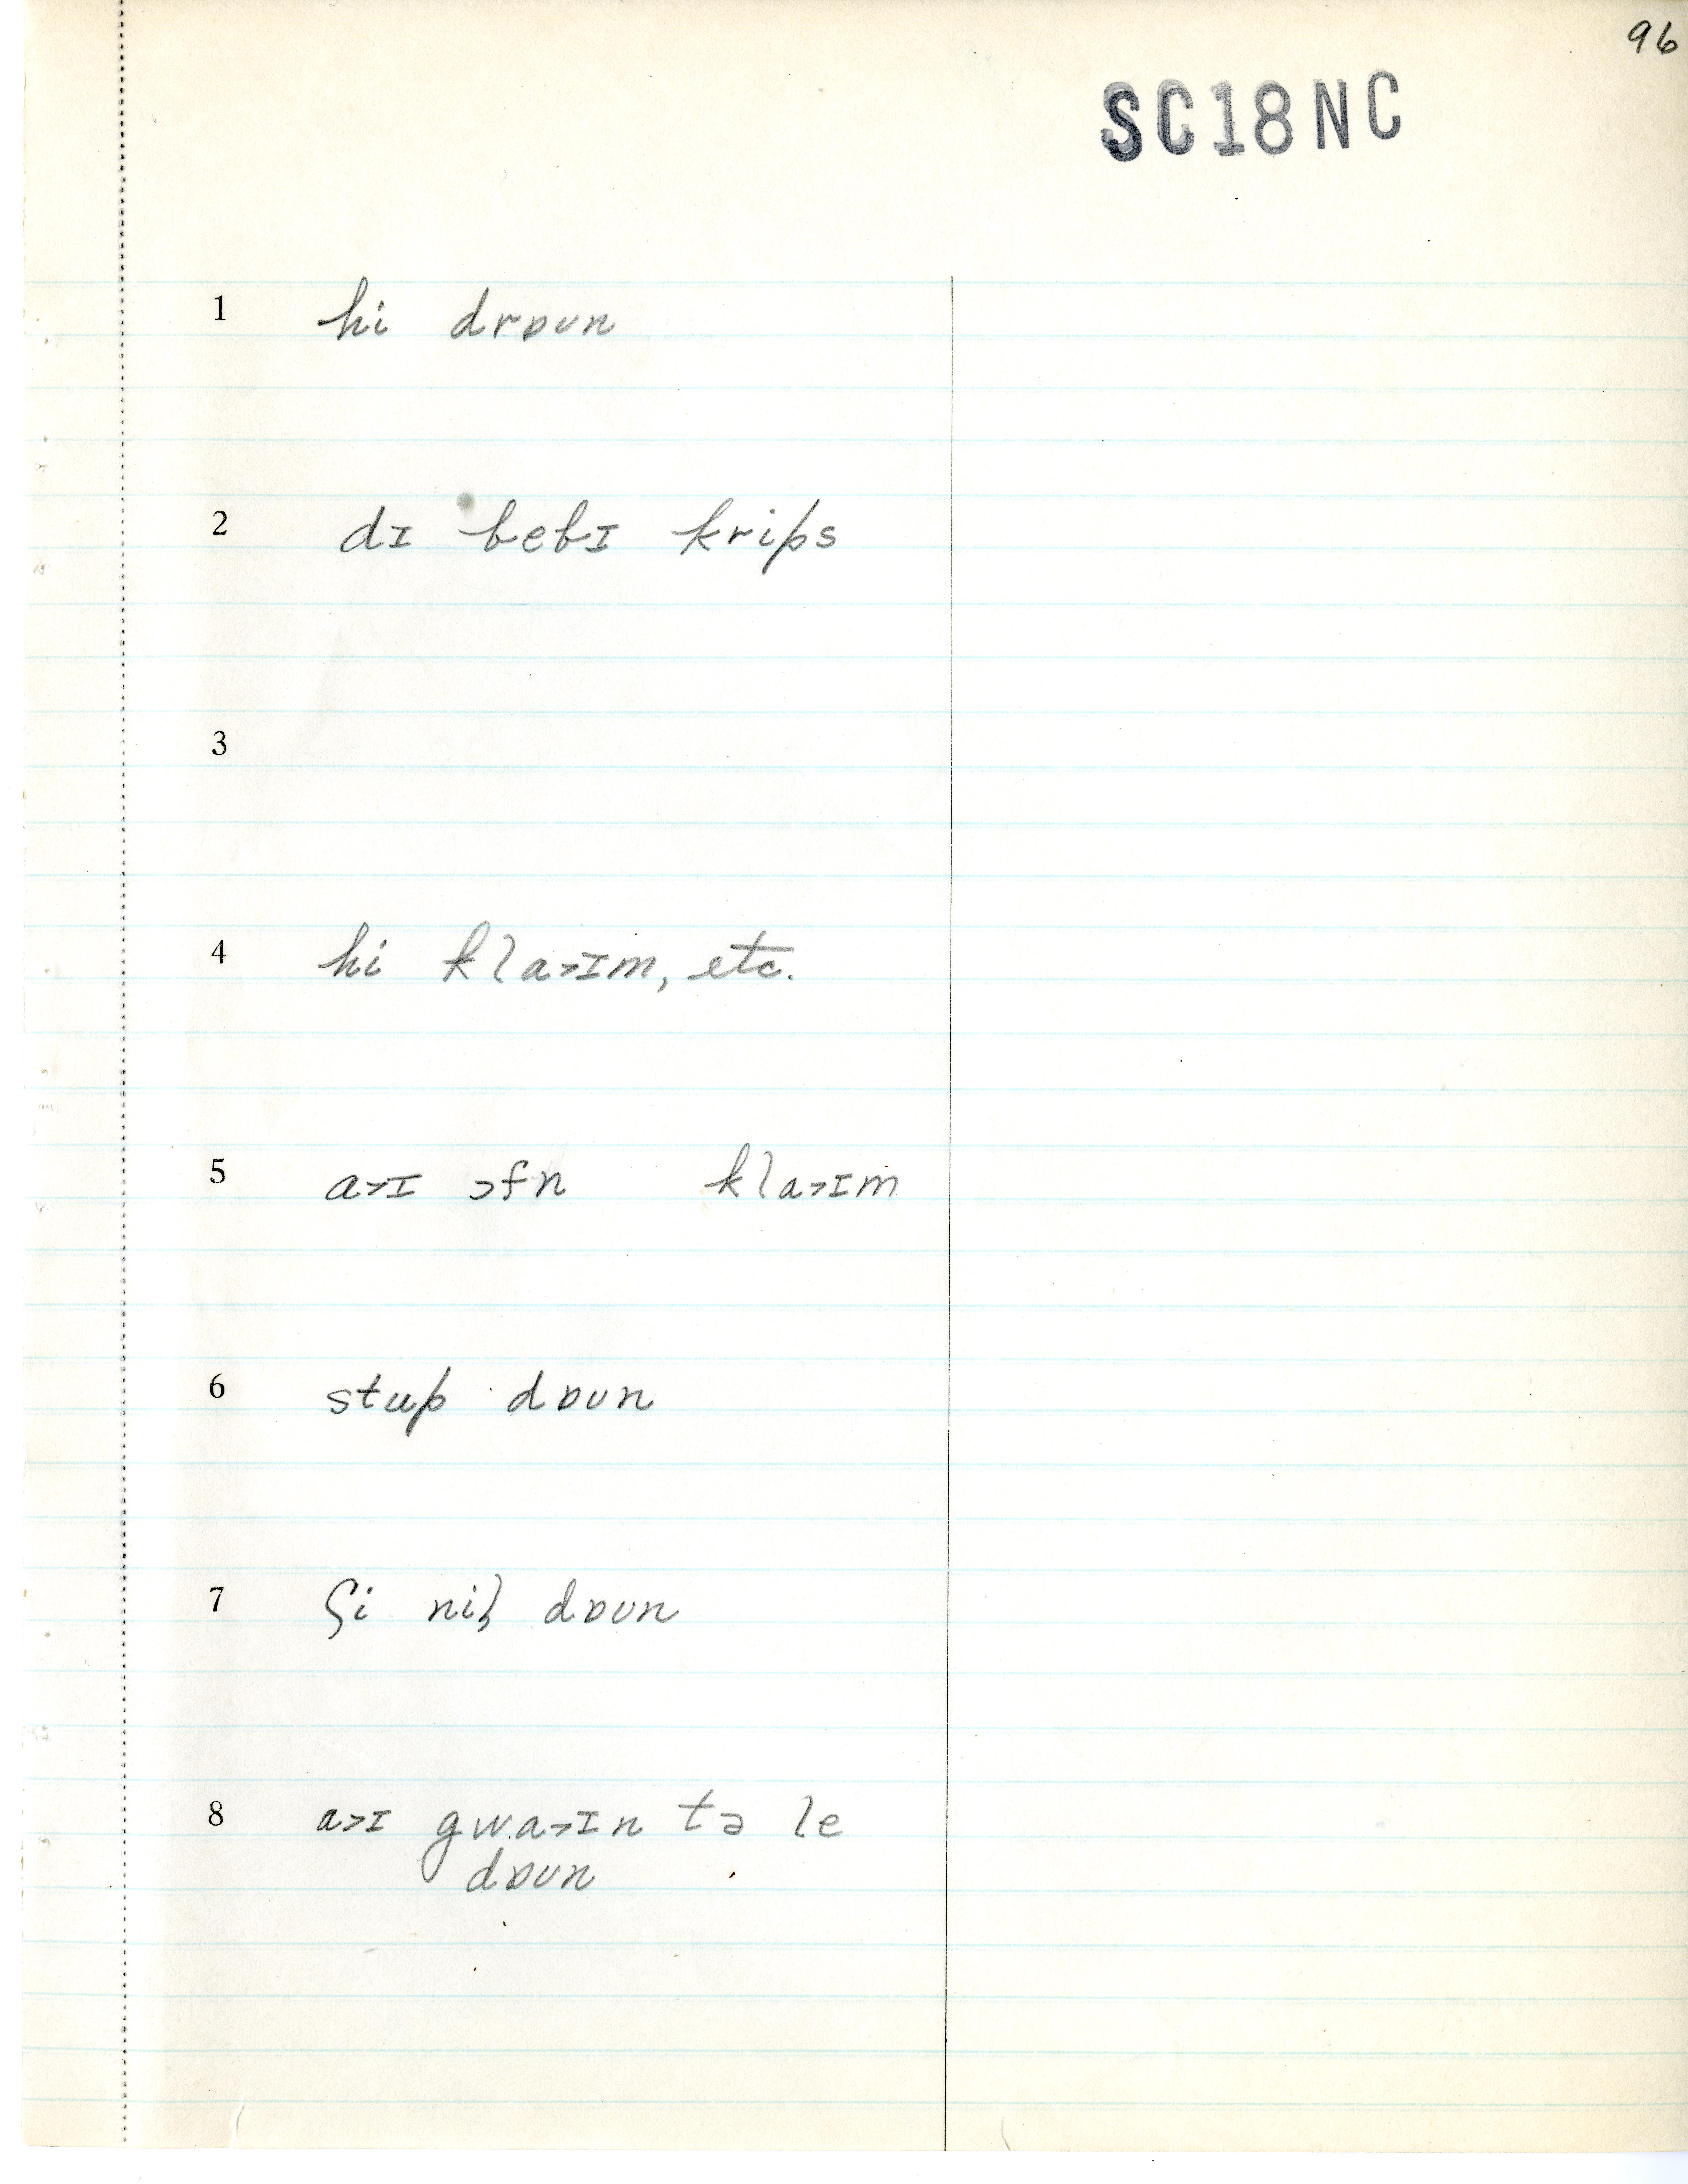 96
SC18NC
1 hi drɒʊn
2 dɪ bebɪ krips
3
4 hi kla˃ɪm, etc.
5 a˃ɪ ɔfn kla˃ɪm
6 stup dɒʊn
7 ʃi nil dɒʊn
8 a˃ɪ gwa˃ɪn tə le
dɒʊn